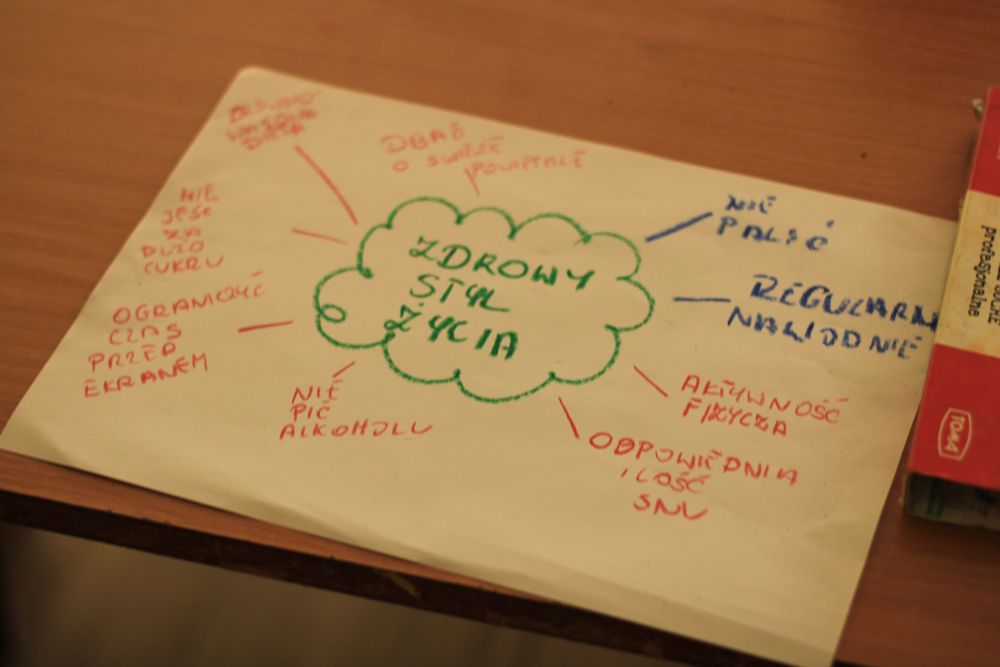 DIETA
DBAŚ
O ŚWIEŻE
POWIETRZE
NIE
JEŚĆ
ZA
DUŻO
CUKRU
OGRANICZYĆ
CZAS
PRZED
EKRANEM
NIE
PIĆ
ALKOHOLU
ZDROWY
STYL
ŻYCIA
NIE
PALIĆ
REGULARN
NAWODNIE
AKTYWNOŚĆ
FIZYCZA
ODPOWIEDNIA
ILOŚĆ
SNU
profesjonalne
TOMA